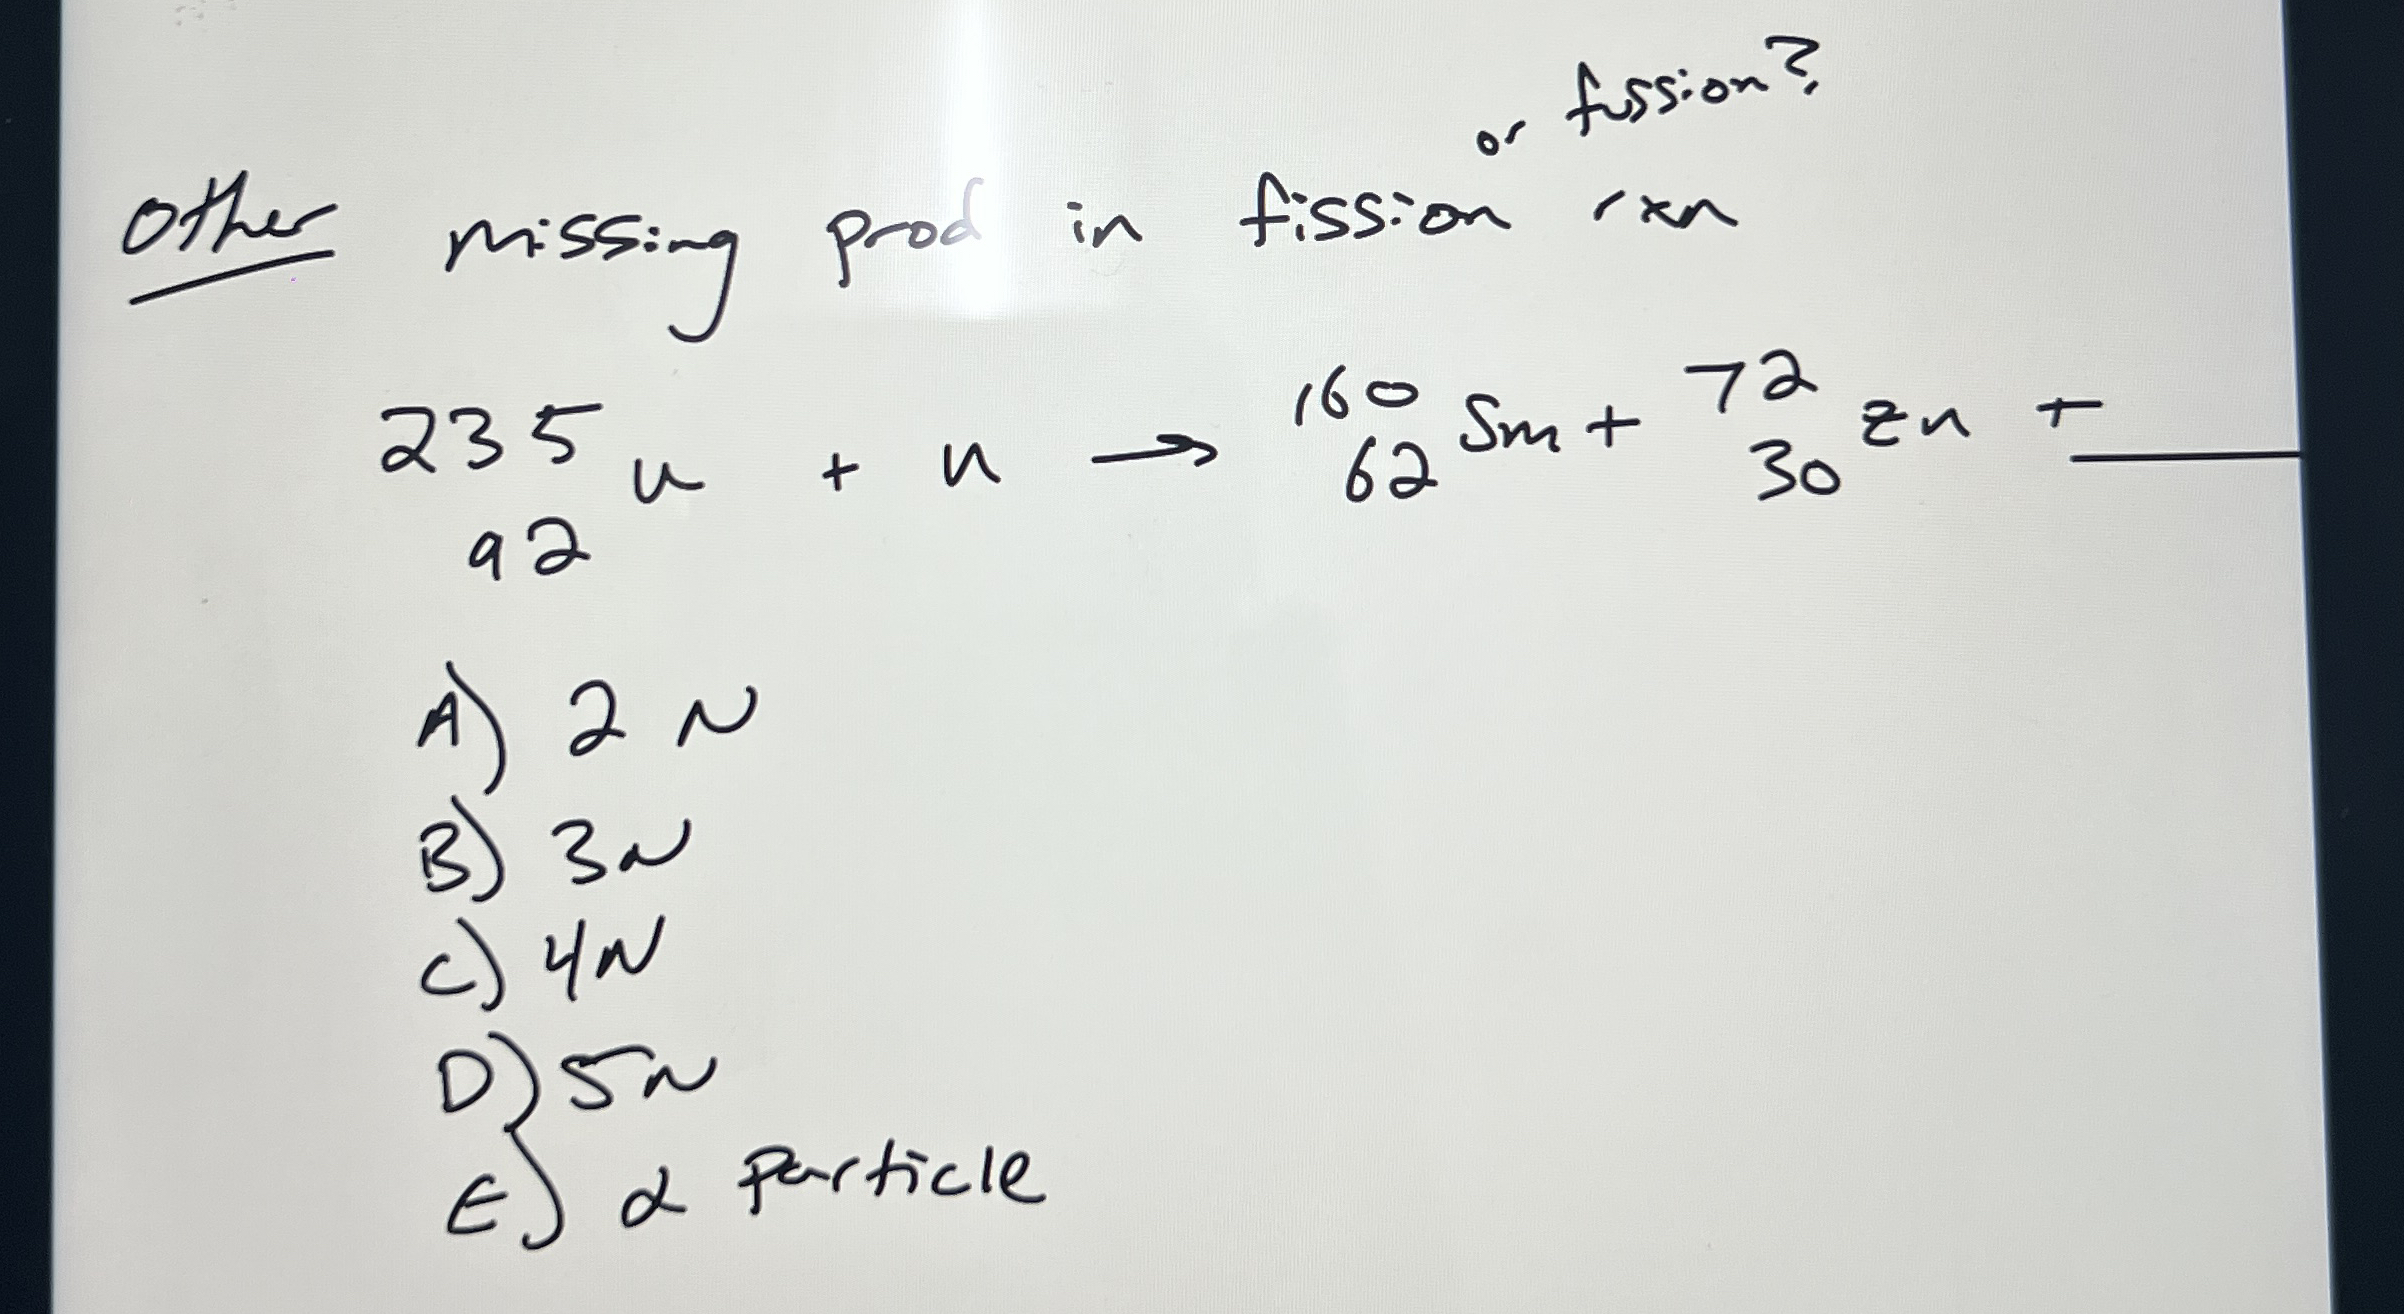 or fussion?
Other missing prod in fission rxn
235 92 U + n → 160 62 Sm + 72 30 Zn + ___
A) 2 N
B) 3N
C) 4N
D) 5N
E) α Particle